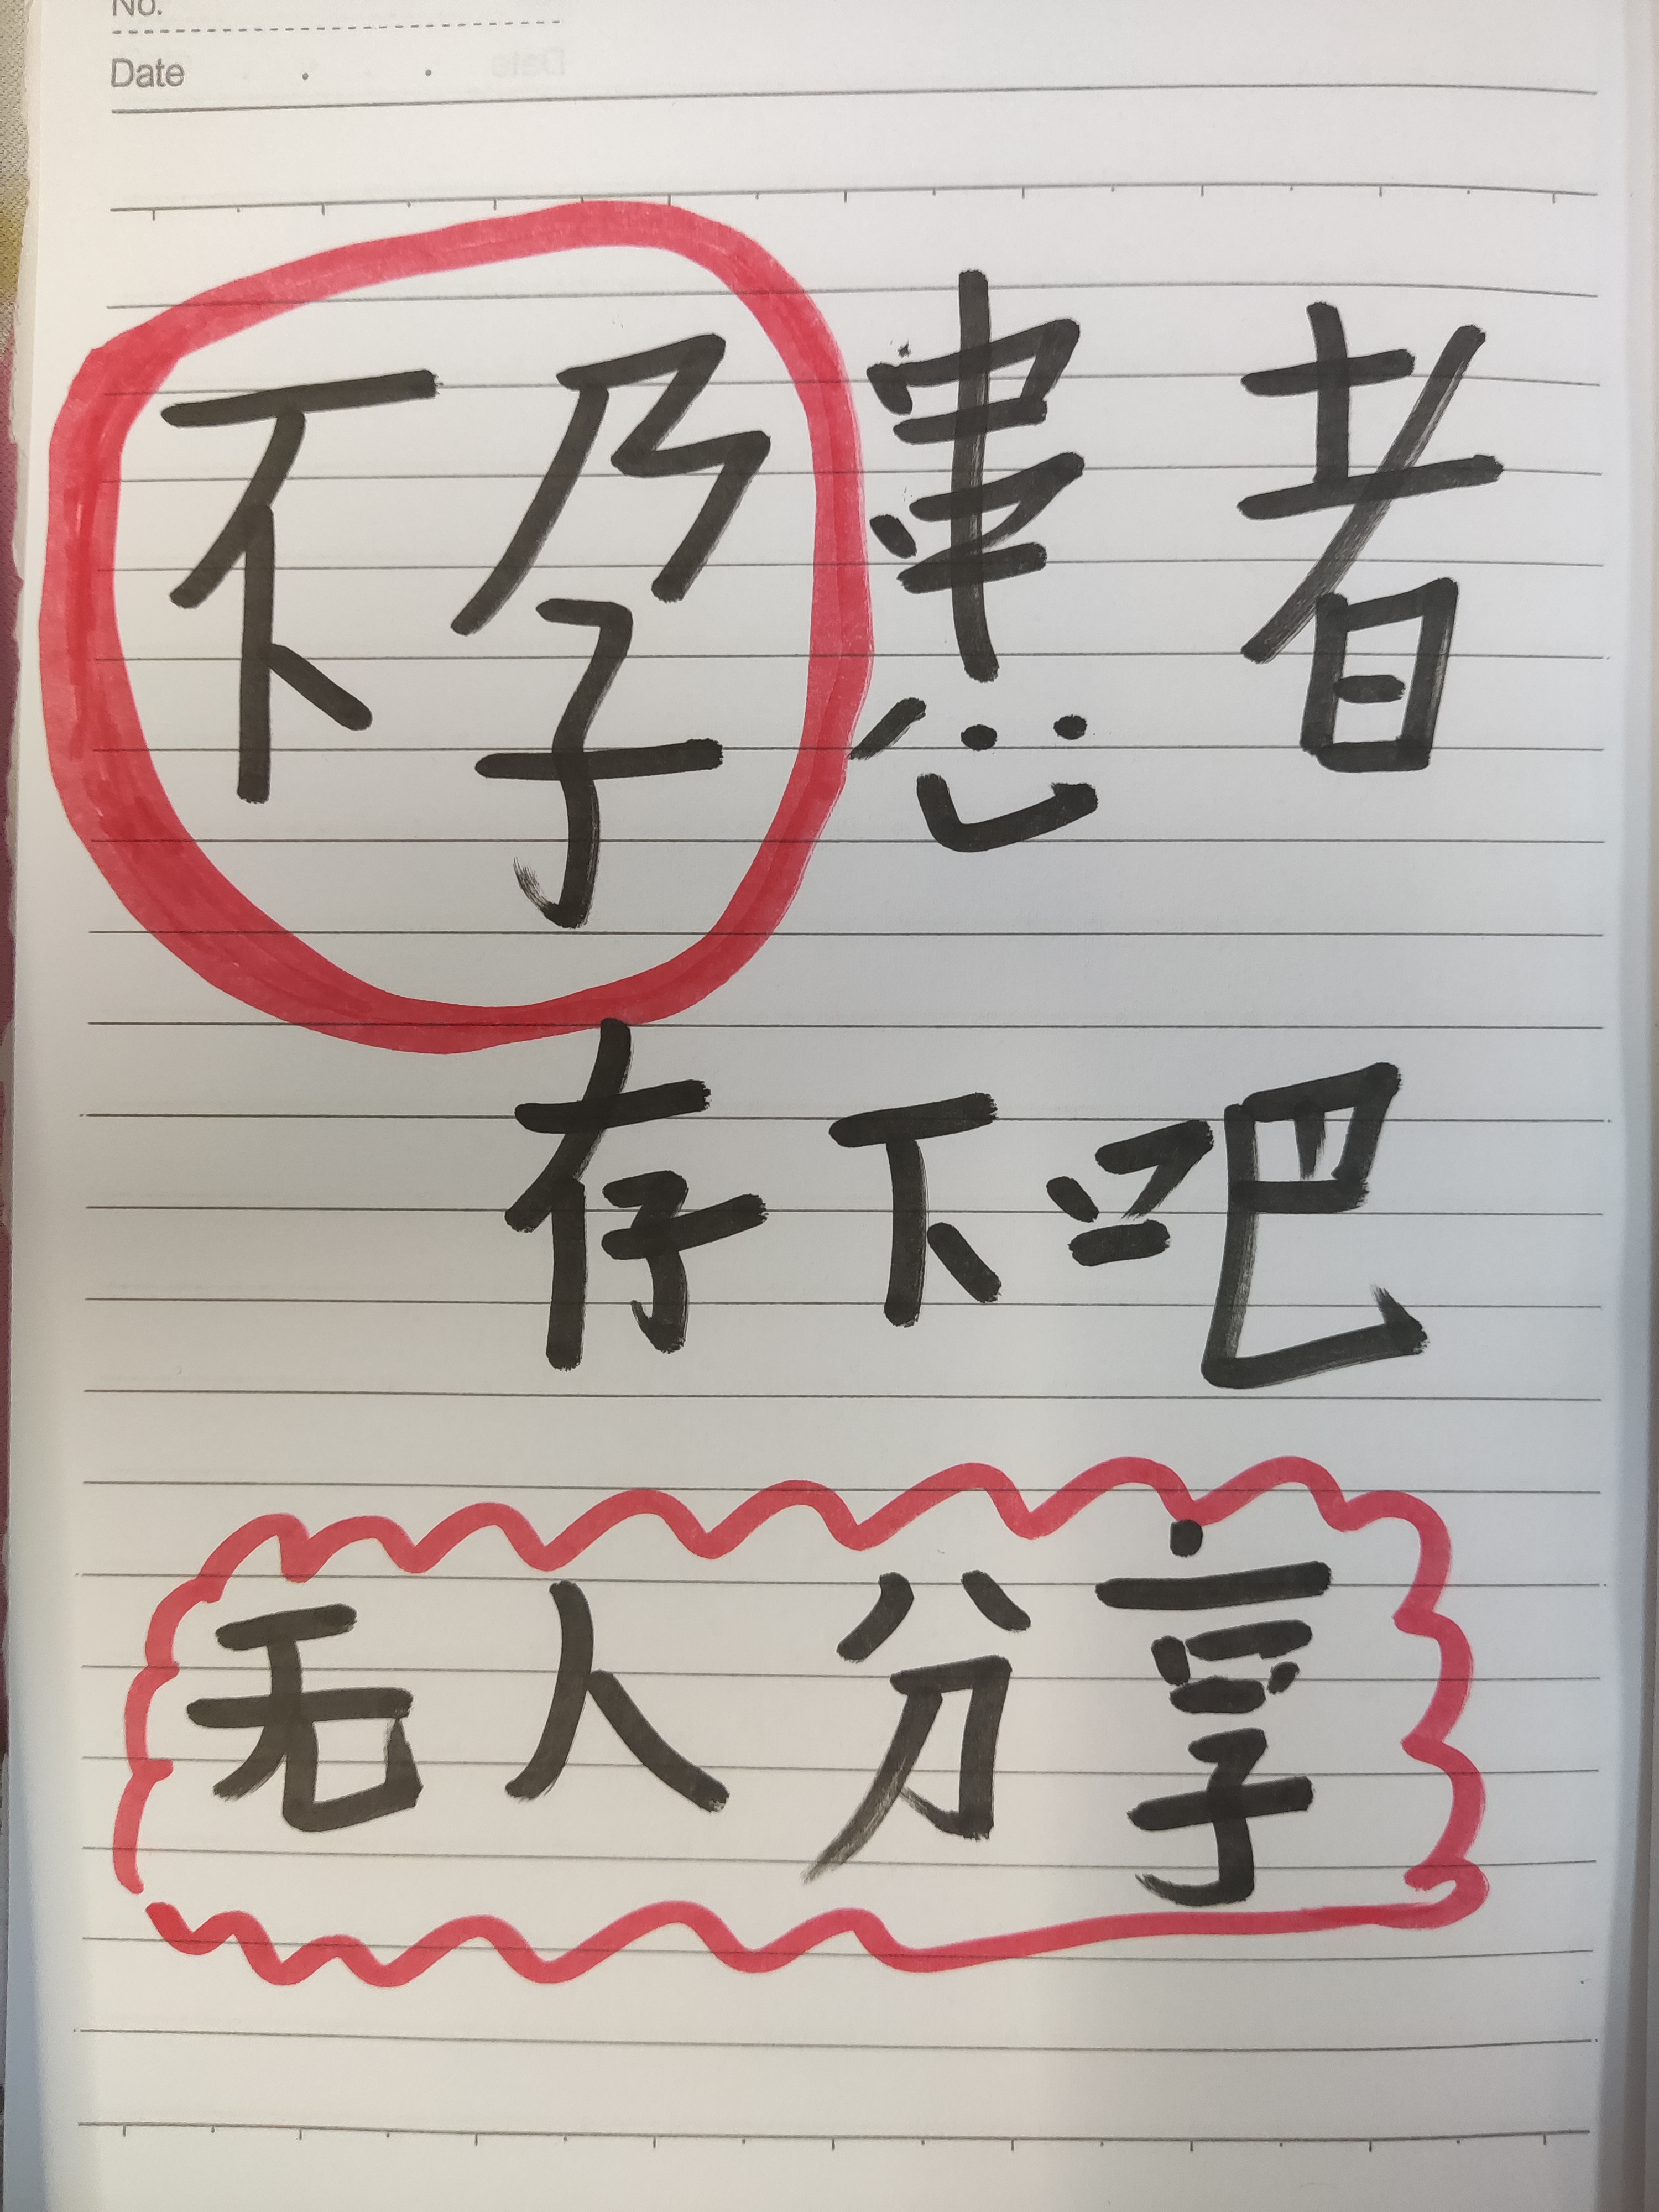 No.
Date
不孕患者
存下吧
无人分享